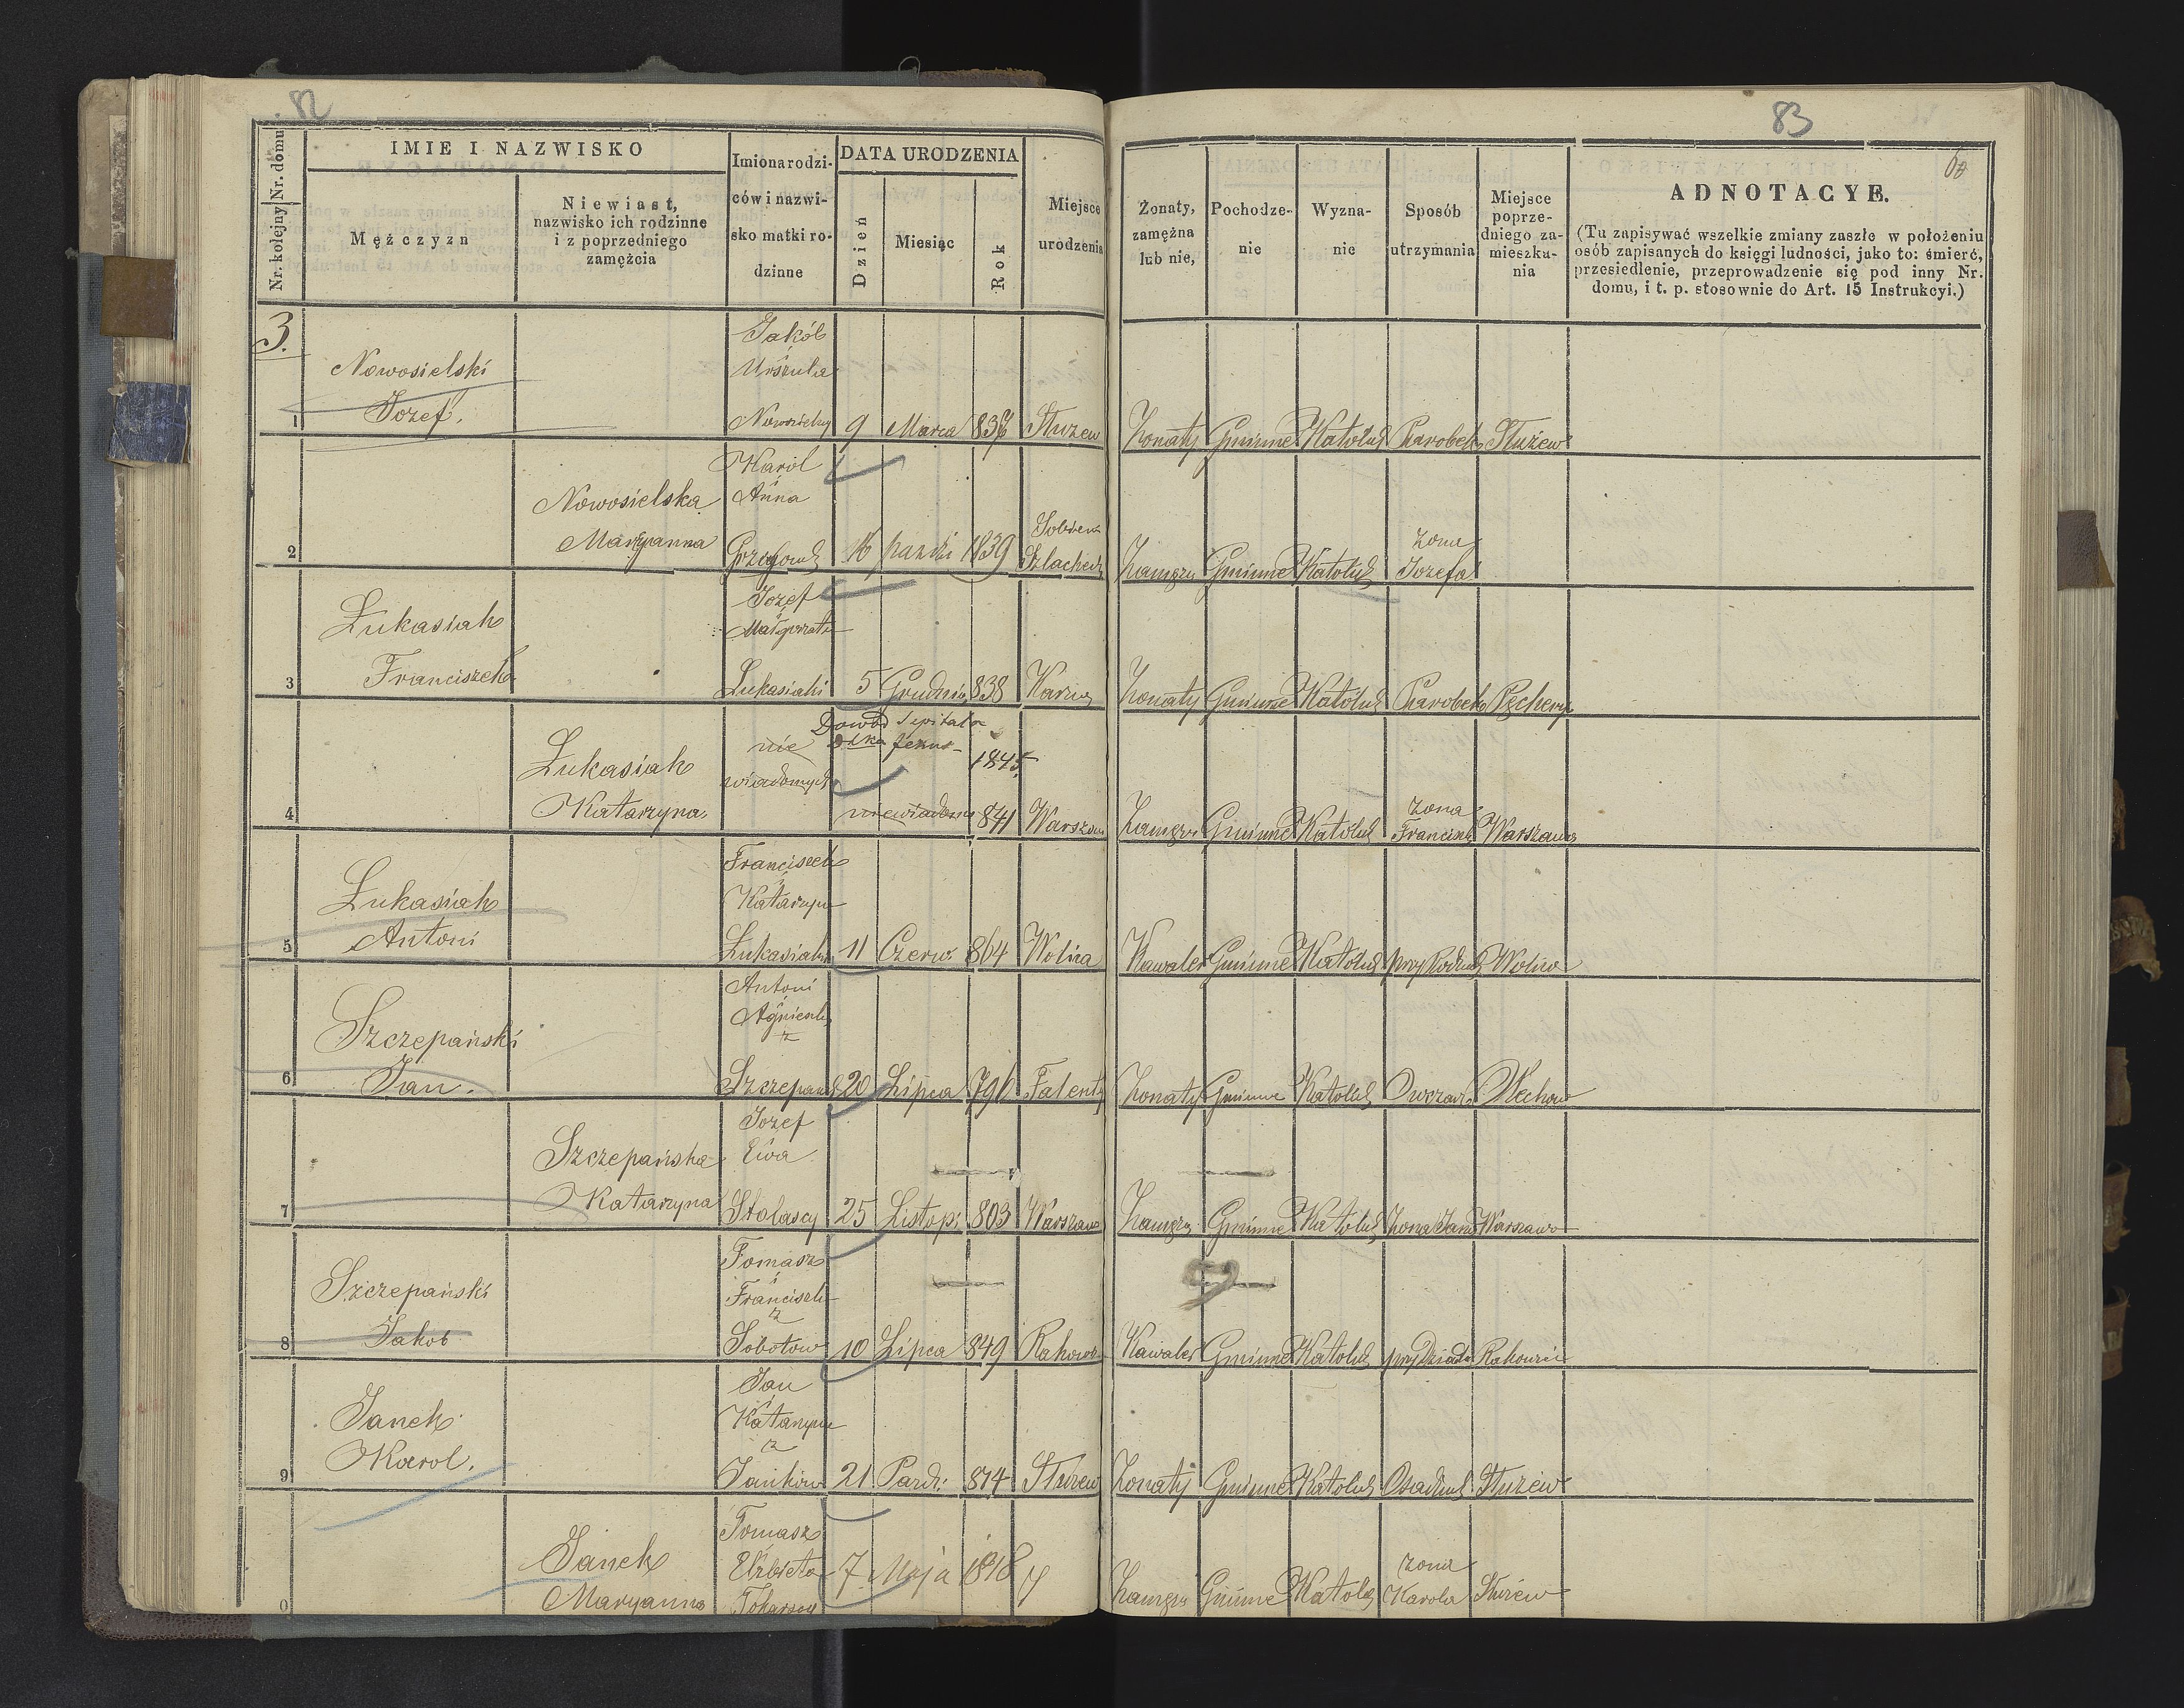 82
Nr. kolejny Nr. domu
IMIE I NAZWISKO
Mężczyzn
Niewiast,
nazwisko ich rodzinne
i z poprzedniego
zamężcia
Imiona rodzi-
ców i nazwi-
sko matki ro-
dzinne
DATA URODZENIA
Dzień
Miesiąc
Rok
Miejsce
urodzenia
3.
Nowosielski
Jozef.
Jakób
i
Urszula
1
9 Marca
Służew
Karol
i
Anna
Nowosielska
Maryanna
2
16 1839
Łukasiak
Franciszek
Jozef
i
Małgorzata
3
Łukasiaki 5 Grudnia 838
Łukasiak
Katarzyna
nie
wiadomych
Dowód
1845.
4
niewiadomy 841 Warszawa
Łukasiak
Antoni
Franciszek
i
Katarzyna
5
11 Czerw. 864 Wolica
Szczepański
Jan.
Antoni
i
Agnieszka
z
6
20 Lipca 796 Falenty
Szczepańska
Katarzyna
Jozef
i
Ewa
7
25 Listop. 803 Warszawa
Szczepański
Jakob
Tomasz
i
Franciszka
z
8
Sobotów 10 Lipca 849
Janek
Karol.
Jan
i
Katarzyna
z
9
Janków 21 Paźdz. 814 Służew
Janek
Maryanna
Tomasz
i
Elżbieta
0
7 Maja 1818
83
60
Żonaty,
zamężna
lub nie,
Pochodze-
nie
Wyzna-
nie
Sposób
utrzymania
Miejsce
poprze-
dniego za-
mieszka-
nia
ADNOTACYE.
(Tu zapisywać wszelkie zmiany zaszłe w położeniu
osób zapisanych do księgi ludności, jako to: śmierć,
przesiedlenie, przeprowadzenie się pod inny Nr.
domu, i t. p. stosownie do Art. 15 Instrukcyi.)
Żonaty Gminne Katolik Parobek Służew
żona
Zamężna Gminne Katolik Jozefa
Żonaty Gminne Katolik Parobek Pęchery
żona
Zamężna Gminne Katolik Franciszka Warszawa
Kawaler Gminne Katolik przy Rodzicach Wolica
Żonaty Gminne Katolik Owczarz
Zamężna Gminne Katolik żona Jana Warszawa
Kawaler Gminne Katolik przy Dziadku
Żonaty Gminne Katolik Służew
żona
Zamężna Gminne Katolik Karola Służew